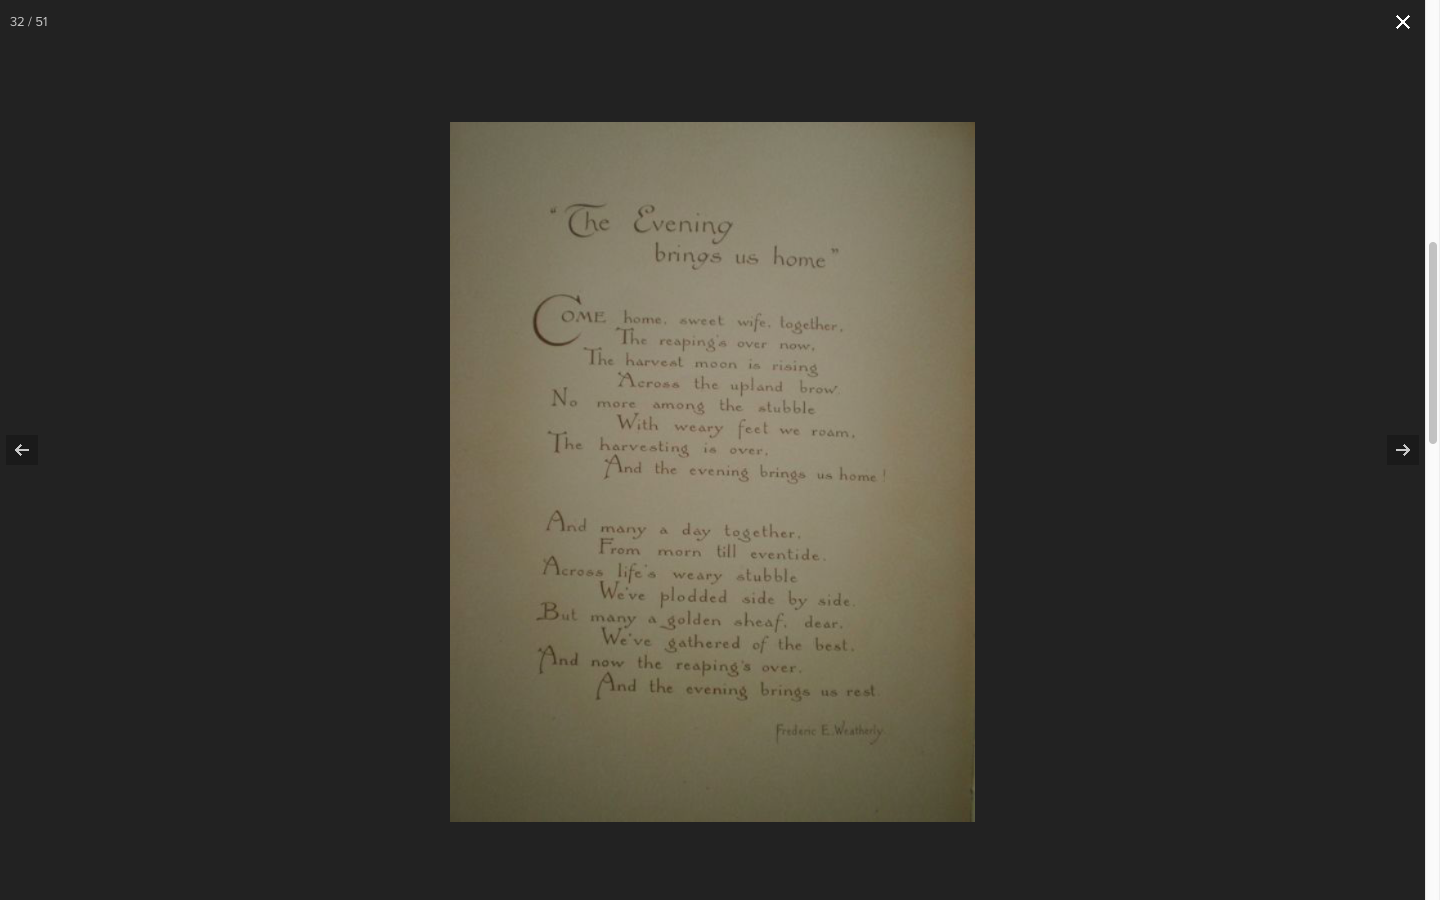 32 / 51
"The Evening
brings us home"
COME home, sweet wife, together,
The reaping's over now,
The harvest moon is rising
Across the upland brow.
No more among the stubble
With weary feet we roam,
The harvesting is over,
And the evening brings us home!
And many a day together,
From morn till eventide,
Across life's weary stubble
We've plodded side by side,
But many a golden sheaf, dear,
We've gathered of the best,
And now the reaping's over,
And the evening brings us rest.
Frederic E. Weatherly